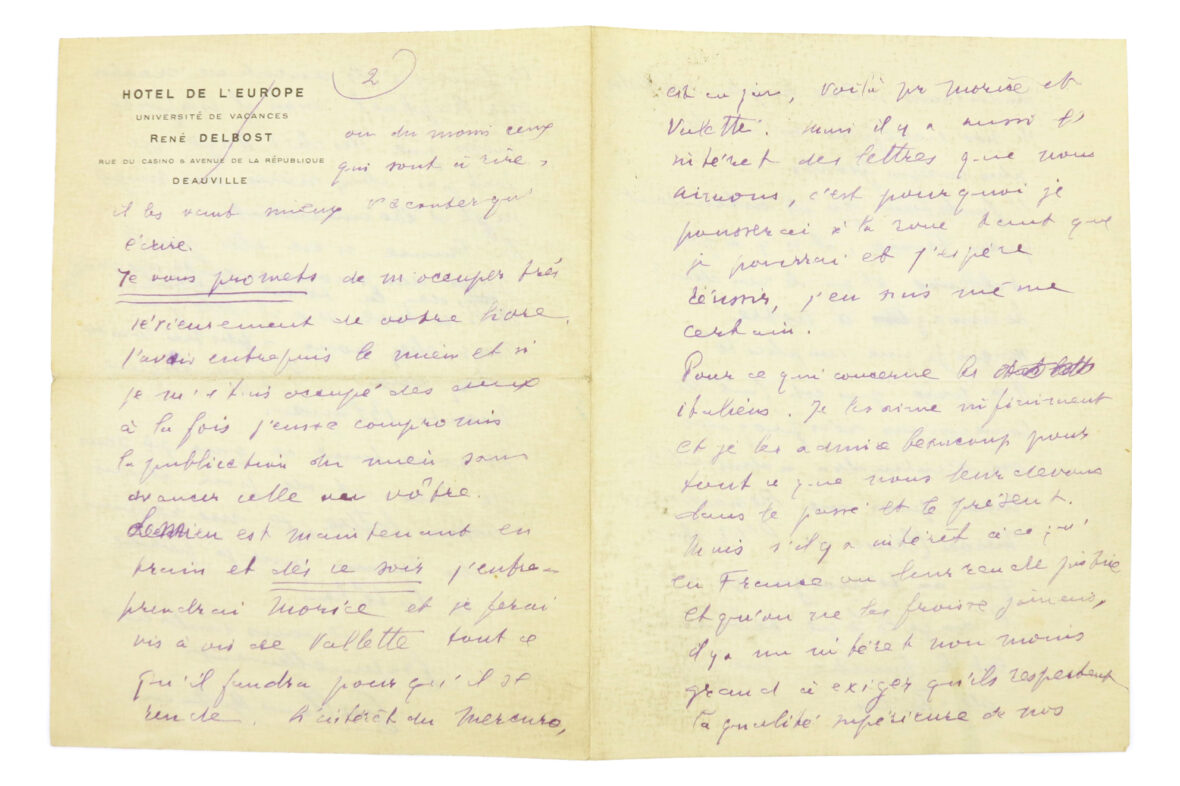 2
HOTEL DE L'EUROPE
UNIVERSITÉ DE VACANCES
RENÉ DELBOST
RUE DU CASINO & AVENUE DE LA RÉPUBLIQUE
DEAUVILLE
ou du moins ceux
qui sont à rire,
il les vaut mieux raconter qu'
écrire.
Je vous promets de m'occuper très
sérieusement de votre livre.
J'avais entrepris le mien et si
je m'étais occupé des deux
à la fois j'eusse compromis
la publication du mien sans
avancer celle du vôtre.
Le mien est maintenant en
train et dès ce soir j'entre-
prendrai Morice et je ferai
vis à vis de Vallette tout ce
qu'il faudra pour qu'il se
rende. L'intérêt du Mercure,
est en jeu, voilà pr Morice et
Vallette. Mais il y a aussi
intérêt des lettres que nous
aimons, c'est pourquoi je
pousserai à la roue tant que
je pourrai et j'espère
réussir, j'en suis même
certain.
Pour ce qui concerne les
italiens. Je les aime infiniment
et je les admire beaucoup pour
tout ce que nous leur devons
dans le passé et le présent.
Mais s'il y a intérêt à ce qu'
en France on leur rende justice
et qu'on ne les froisse jamais,
il y a un intérêt non moins
grand à exiger qu'ils respectent
la qualité supérieure de nos